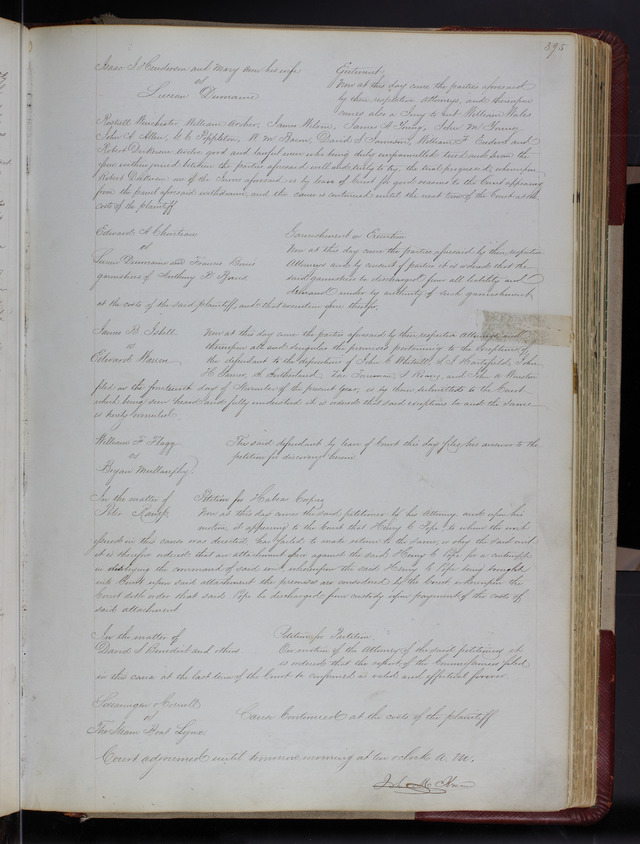 395
Isaac I. Henderson and Mary Ann his wife Ejectment
vs Now at this day came the parties aforesaid
Lucien Dumaine by their respective attorneys, and thereupon
comes also a Jury to wit William Wales
Russell Winchester, William Archer, James Milone, James A Young, John M Young
John A Allen, C C Pappleton, W M Bacon, David S Insman, William F Enders and
Robert Dickerson twelve good and lawful men who being duly empannelled tried and sworn the
issue within joined between the parties aforesaid well and truly to try, the trial progressed, whereupon
Robert Dickerson one of the Jurors aforesaid is by leave of Court for good reasons to the Court appearing
from the panel aforesaid withdrawn and the cause is continued until the next term of the Court at the
costs of the plaintiff
Edward A Chouteau Garnishment on Execution
vs Now at this day came the parties aforesaid by their respective
Lucien Dumaine and Francis Denis Attorneys and by consent of parties it is ordered that the
garnishees of Anthony P said garnishees be discharged from all liability and
demand under or authority of such garnishment
at the costs of the said plaintiff, and that execution issue therefor.
James B Isbell Now at this day came the parties aforesaid by their respective Attorneys and
vs thereupon all and singular the premises pertaining to the exceptions of
Edward Warren the defendant to the depositions of John C Whitsett, S. I. Hempfield, John
H. James, A. Sutherland, J. Keary, and John A
filed on the fourteenth day of November of the present year, is by them submitted to the Court
which being seen heard and fully understood it is ordered that said exceptions be and the same
is hereby overruled
William F Flagg The said defendant by leave of Court this day files his answer to the
vs petition for discovery herein
Bryan Mullanphy.
In the matter of Petition for Habeas Corpus
Peter Now at this day comes the said petitioner by his Attorney and upon his
motion, it appearing to the Court that Henry C Pope to whom the writ
issued in this cause was directed has failed to make return to the same, or obey the said writ
it is therefore ordered that an attachment issue against the said Henry C Pope for a contempt
in disobeying the command of said writ, whereupon the said Henry C Pope being brought
into Court upon said attachment the premises are considered by the Court whereupon the
Court doth order that said Pope be discharged from custody upon payment of the costs of
said attachment
In the matter of Petition for Partition
David S Benedict and others On motion of the Attorney of the said petitioners it
is ordered that the report of the Commissioners filed
in this cause at the last term of the Court be confirmed as valid and effectual forever
Swearingen &
vs Cause Continued at the costs of the plaintiff
The Steam Boat Lynx
Court adjourned until tomorrow morning at ten oclock A. M.